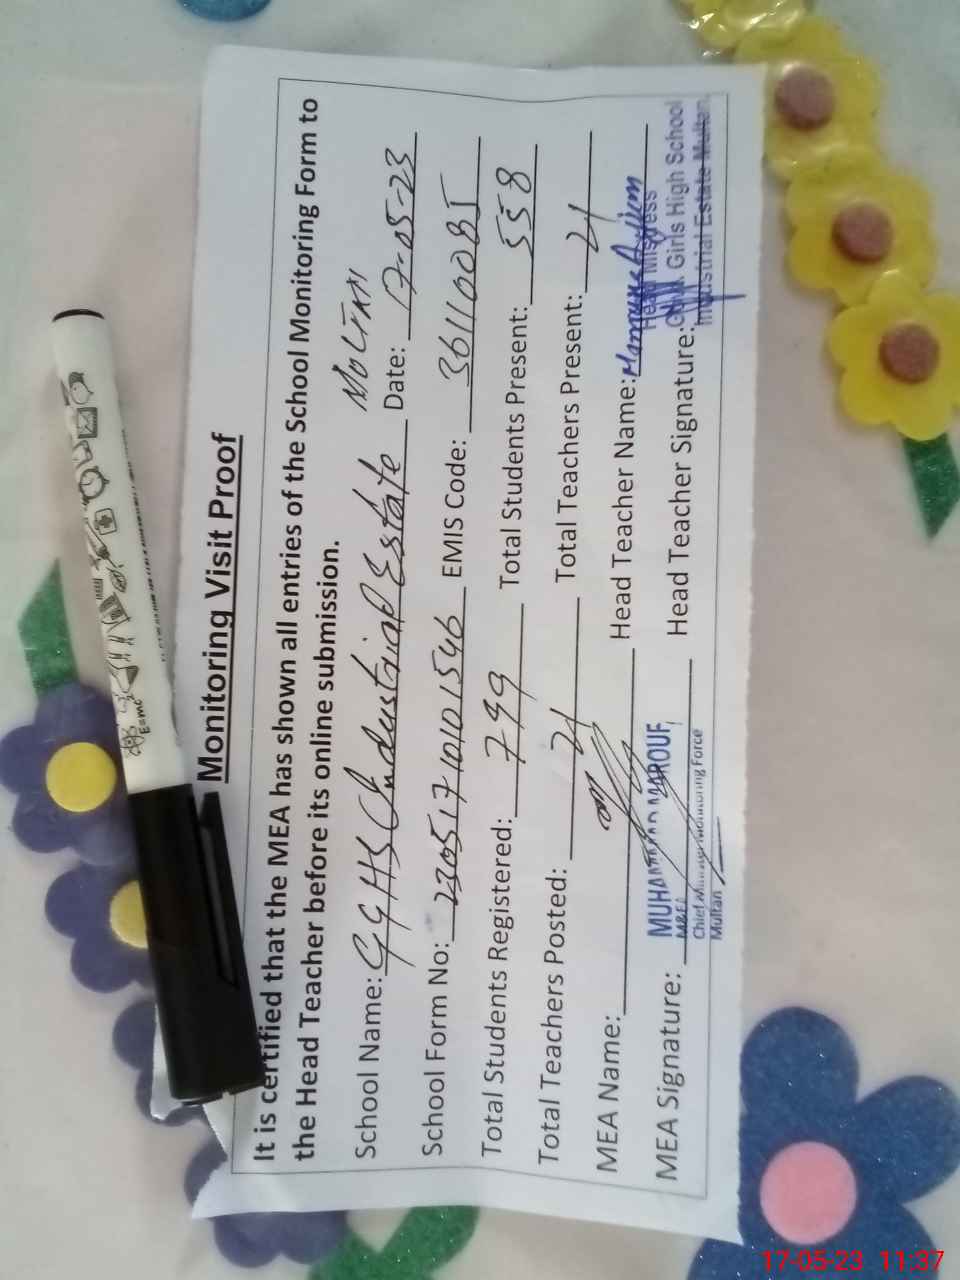 Monitoring Visit Proof
It is certified that the MEA has shown all entries of the School Monitoring Form to
the Head Teacher before its online submission.
School Name: GGHS Industrial Estate Multan Date: 17-05-23
School Form No: 2305171010101546 EMIS Code: 36110085
Total Students Registered: 799 Total Students Present: 558
Total Teachers Posted: 21 Total Teachers Present: 21
MEA Name: Head Teacher Name:
Head Mistress
MEA Signature: Head Teacher Signature: Govt. Girls High School
Industrial Estate Multan.
MUHAMMAD MAROUF
Chief Monitoring Force
Multan
E=mc²
17-05-23 11:37